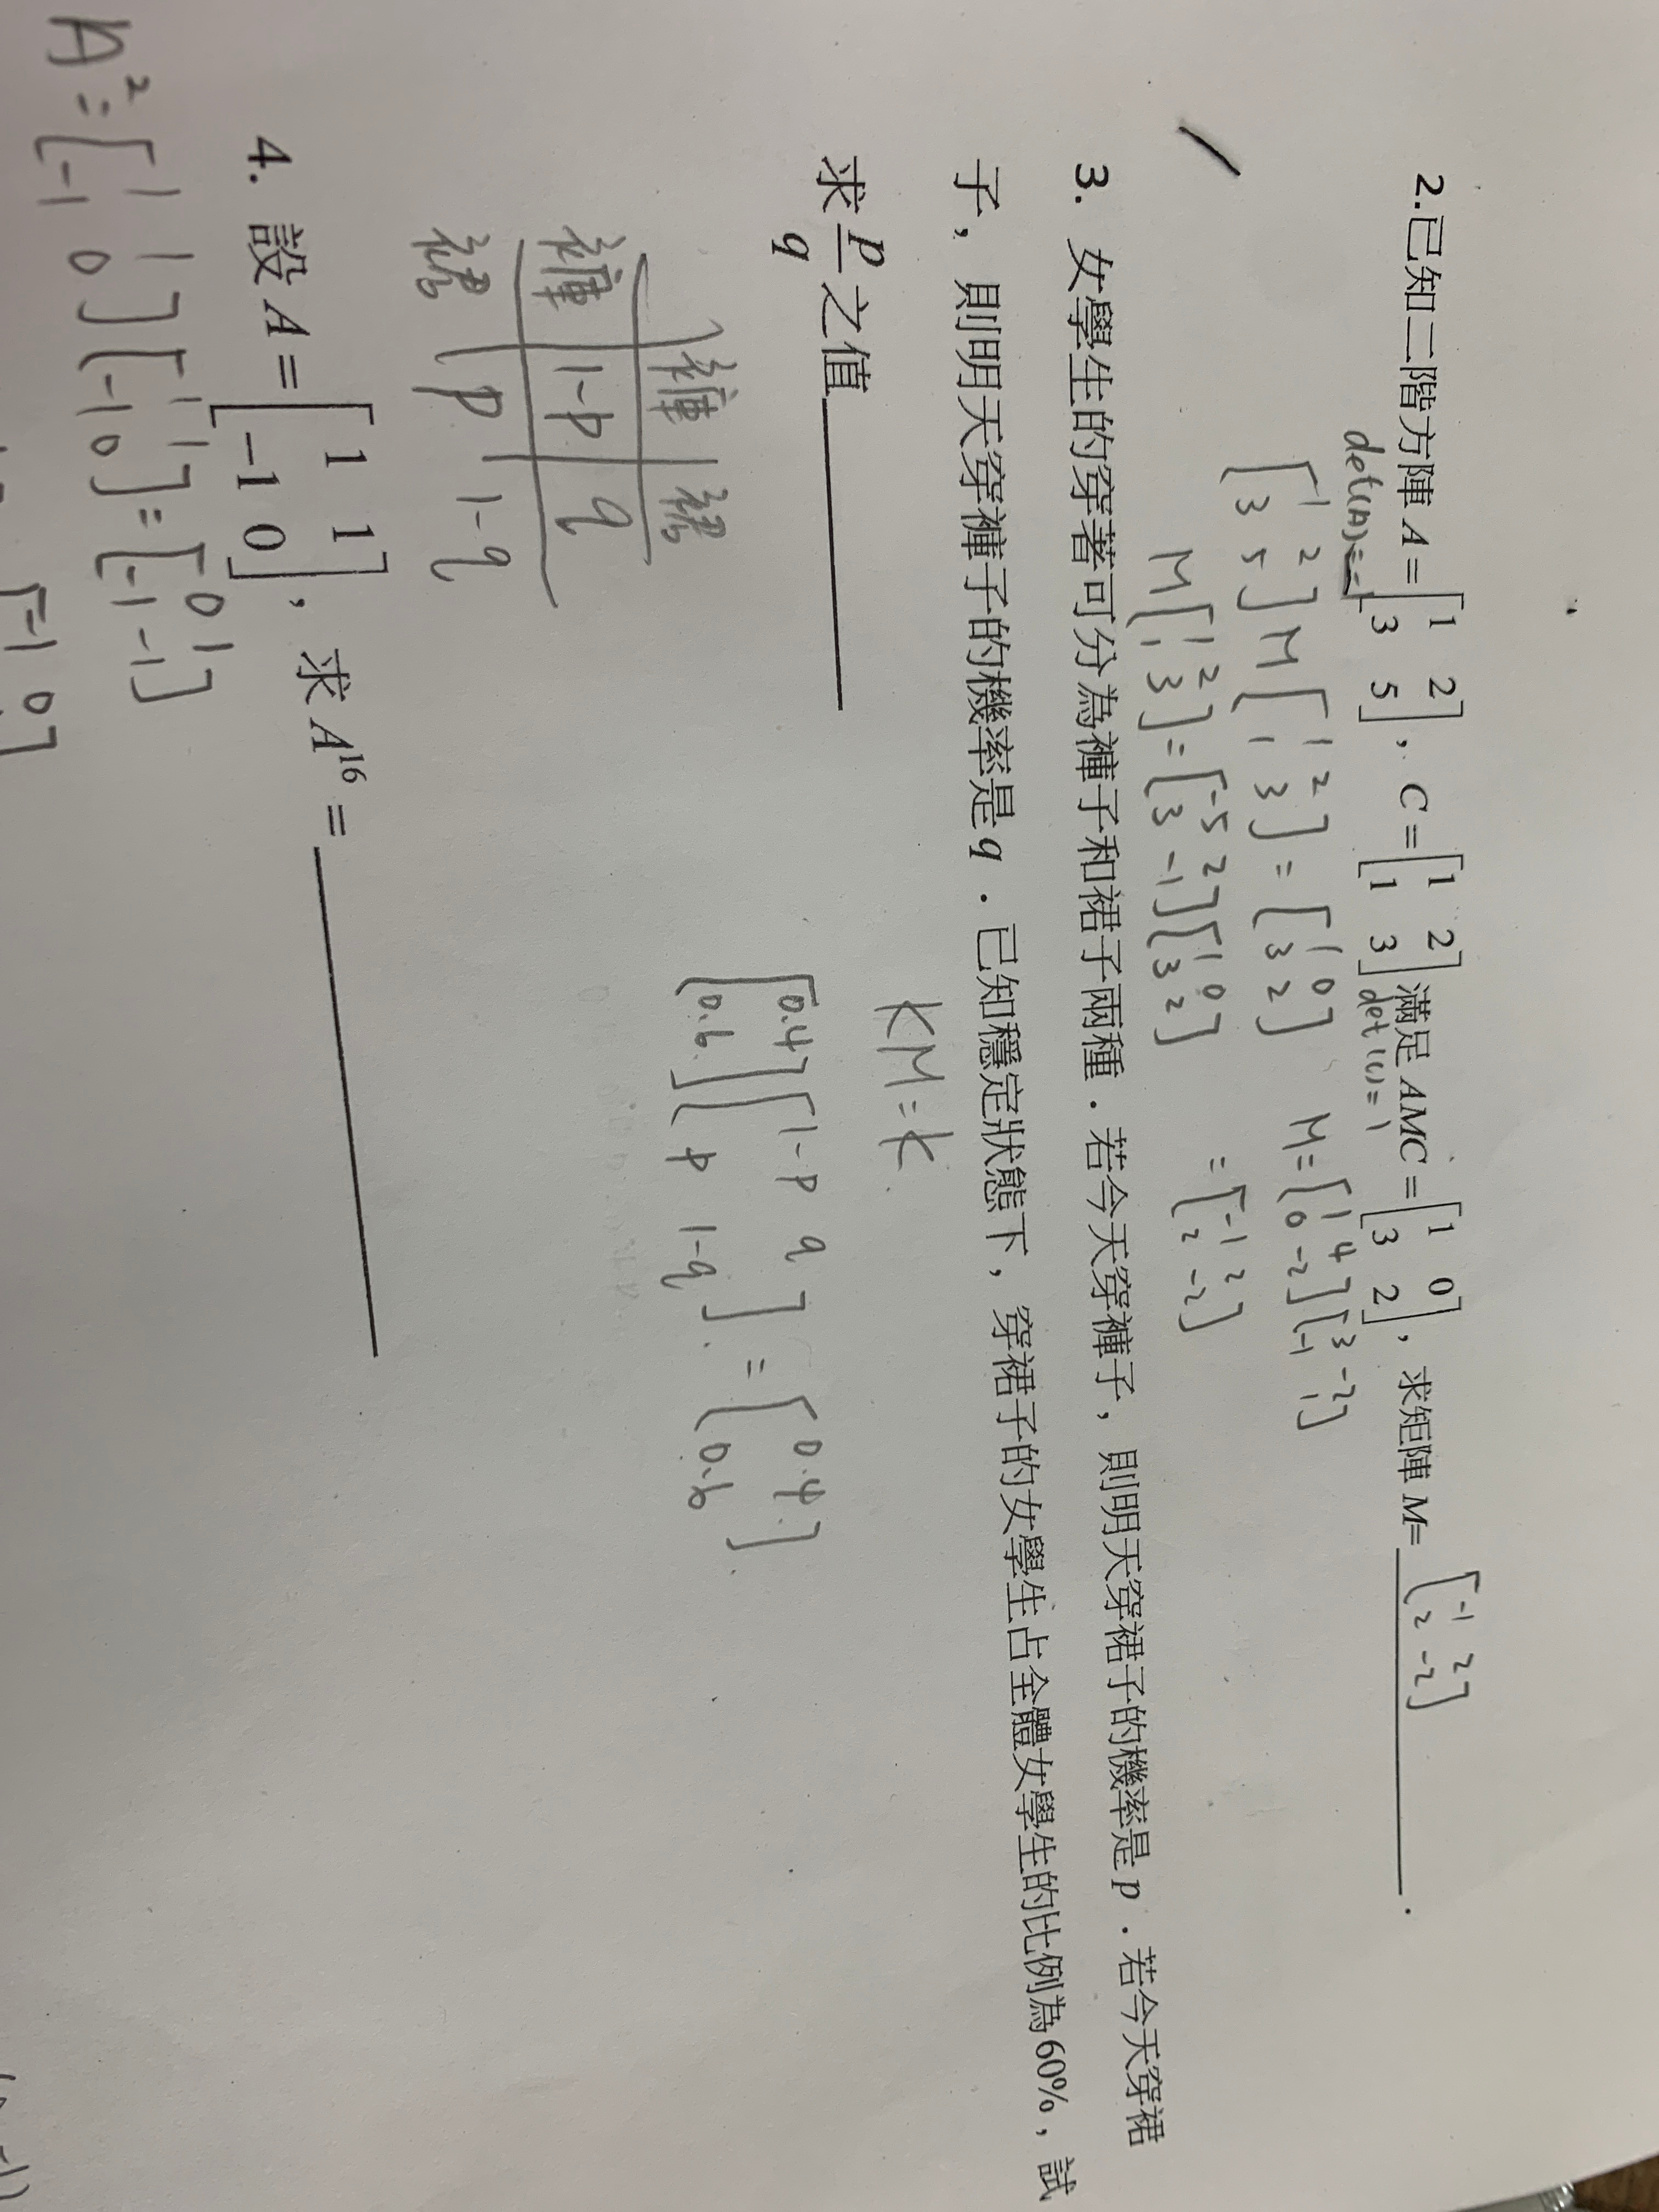 2.已知二階方陣 A = [1 2; 3 5], C = [1 2; 1 3] 滿足 AMC = [1 0; 3 2], 求矩陣 M= [-1 2; 2 -2] .
det(A)=-1 det(C)=1
[1 2; 3 5] M [1 2; 1 3] = [1 0; 3 2] M = [1 4; 0 -2][3 -2; -1 1]
M [1 2; 1 3] = [-5 2; 3 -1][1 0; 3 2] = [-1 2; 2 -2]
3. 女學生的穿著可分為褲子和裙子兩種．若今天穿褲子，則明天穿裙子的機率是 p．若今天穿裙
子，則明天穿褲子的機率是 q．已知穩定狀態下，穿裙子的女學生占全體女學生的比例為 60%，試
求 p/q 之值
KM=K
[0.4; 0.6][1-p q; p 1-q] = [0.4; 0.6]
褲 裙
褲 1-p q
裙 p 1-q
4. 設 A = [1 1; -1 0], 求 A^16 =
A² = [1 1; -1 0][1 1; -1 0] = [0 1; -1 -1]
[-1 0]